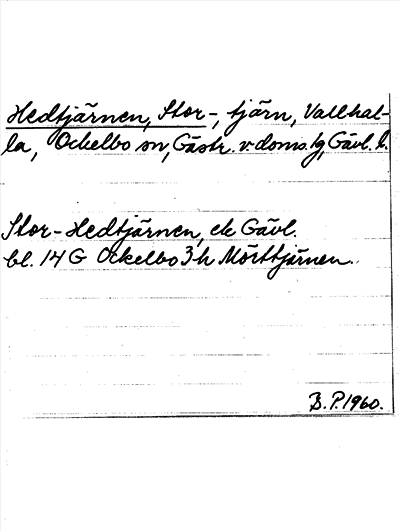 Hedtjärnen, Stor-, tjärn, Vallhal-
la, Ockelbo sn, Gästr. v. doms. tg, Gävl. l.
Stor-Hedtjärnen, ek Gävl.
bl. 14 G Ockelbo 3 h Mörttjärnen.
B.P. 1960.